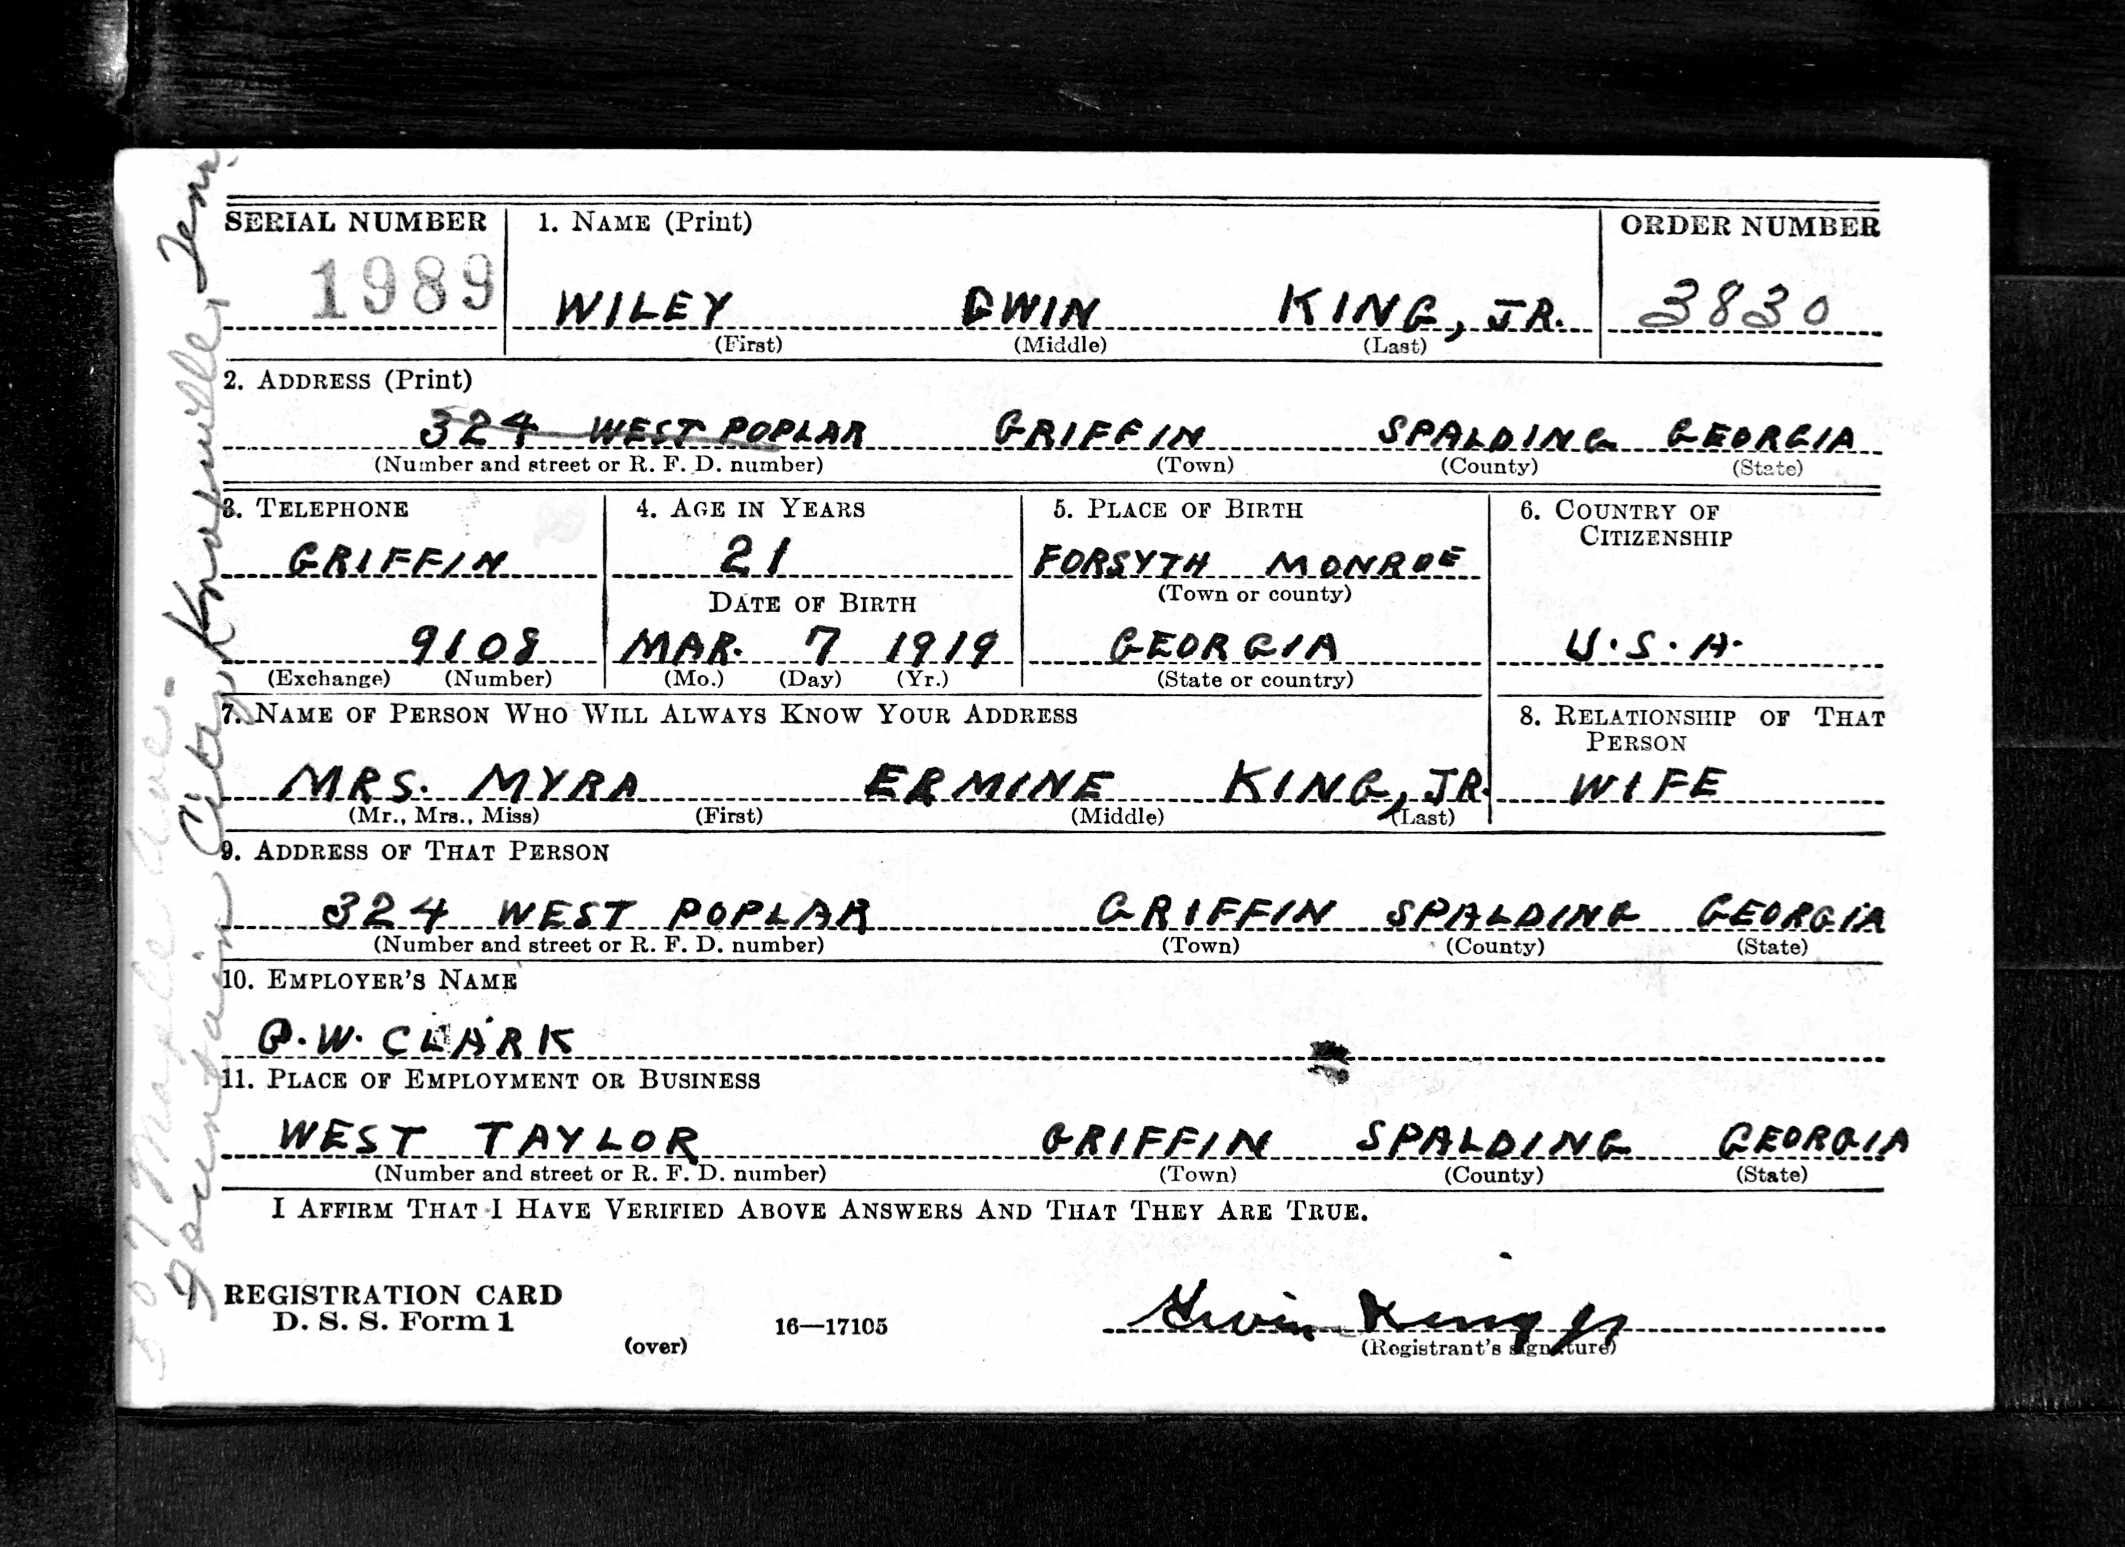 SERIAL NUMBER 1. NAME (Print) ORDER NUMBER
1989 WILEY GWIN KING, JR. 3830
(First) (Middle) (Last)
2. ADDRESS (Print)
324 WEST POPLAR GRIFFIN SPALDING GEORGIA
(Number and street or R. F. D. number) (Town) (County) (State)
3. TELEPHONE 4. AGE IN YEARS 5. PLACE OF BIRTH 6. COUNTRY OF
CITIZENSHIP
GRIFFIN 21 FORSYTH MONROE
DATE OF BIRTH (Town or county)
9108 MAR. 7 1919 GEORGIA U.S.A.
(Exchange) (Number) (Mo.) (Day) (Yr.) (State or country)
7. NAME OF PERSON WHO WILL ALWAYS KNOW YOUR ADDRESS 8. RELATIONSHIP OF THAT
PERSON
MRS. MYRA ERMINE KING, JR. WIFE
(Mr., Mrs., Miss) (First) (Middle) (Last)
9. ADDRESS OF THAT PERSON
324 WEST POPLAR GRIFFIN SPALDING GEORGIA
(Number and street or R. F. D. number) (Town) (County) (State)
10. EMPLOYER'S NAME
W. CLARK
11. PLACE OF EMPLOYMENT OR BUSINESS
WEST TAYLOR GRIFFIN SPALDING GEORGIA
(Number and street or R. F. D. number) (Town) (County) (State)
I AFFIRM THAT I HAVE VERIFIED ABOVE ANSWERS AND THAT THEY ARE TRUE.
REGISTRATION CARD
D. S. S. Form 1
(over) 16—17105
King Jr
(Registrant's signature)
507 Maple Ave.
Fountain City, Knoxville, Tenn.